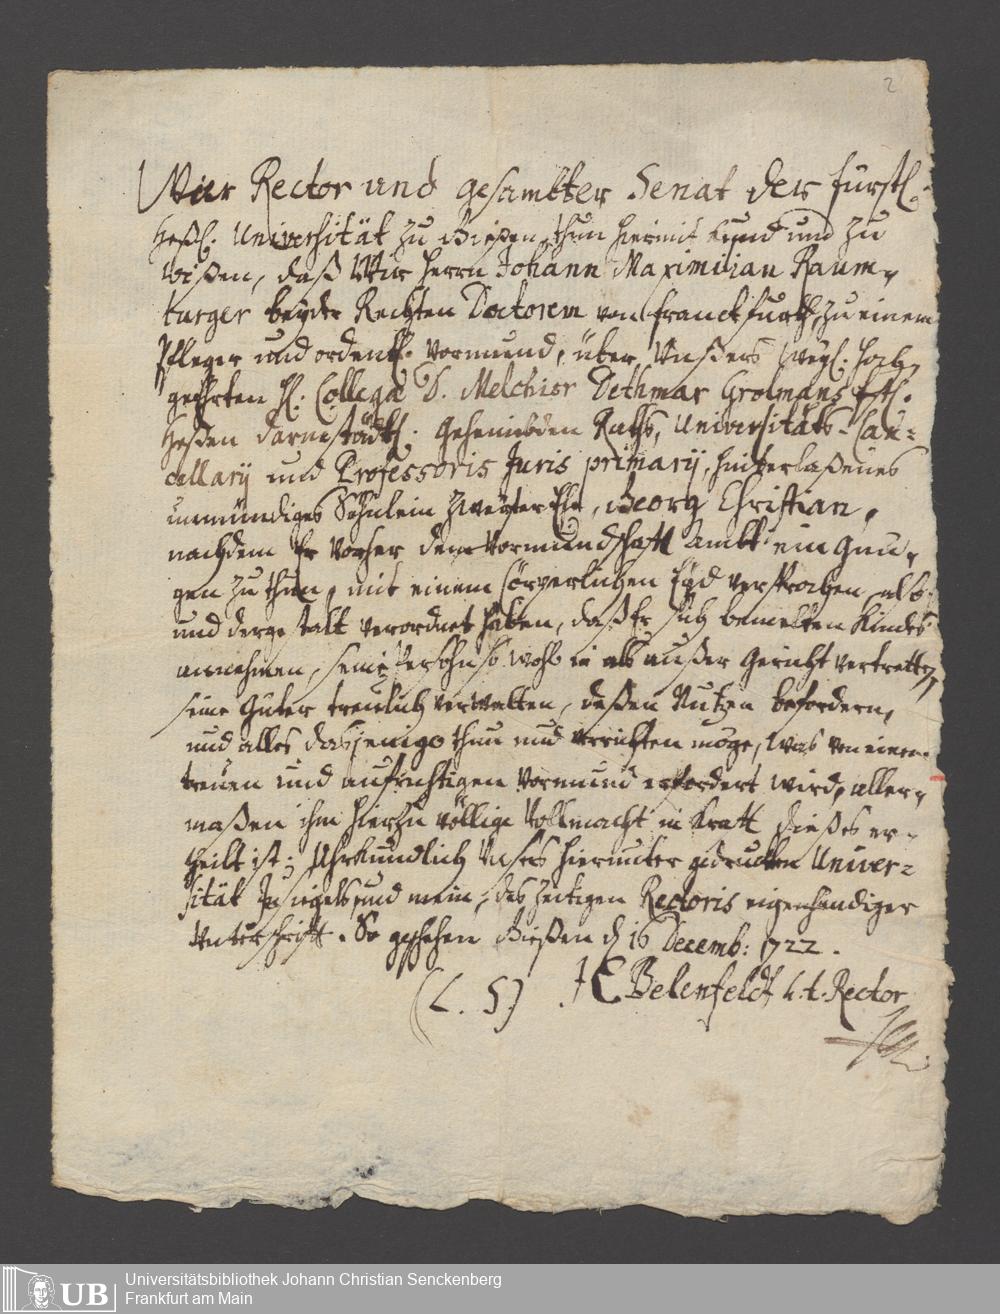 2
Wier Rector und gesambter Senat der fürstl.
Heßl. Universität zu Gießen, thun hiermit kund und zu
wißen, daß Wir Herrn Johann Maximilian Raum-
burger beyder Rechten Doctorem von franckfurth, zu einem
Pfleger und ordentl. Vormund, über Unßers weyl. hoch
geehrten H. Collegæ D. Melchior Dethmar Grolmans fstl.
Heßen darmstädtl. Geheimbden Raths, Universitäts-Can-
cellarij und Professoris Juris primarij, hinterlaßenes
unmündiges Söhnlein zweyter Ehe, Georg Christian,
nachdem Er vorher dem Vormundschafft ambt ein Gnü-
gen zu thun, mit einem cörperlichen Eyd versprochen, als
und dergestalt verordnet haben, daß Er sich bemelten Kindes
annehmen, seine Persohn so wohl in als außer Gericht vertretten,
seine Güter treulich verwalten, deßen Nutzen befordern,
und alles dasjenige thun und verrichten möge, was von einem
treuen und aufrichtigen Vormund erfordert wird, aller-
maßen ihm hierzu völlige Vollmacht in Krafft dießes er-
theilt ist; Uhrkundlich Unsers hierunter gedruckten Univer-
sität Insiegels und mein, des zeitigen Rectoris eigenhändiger
Unterschrifft. So geschehen Gießen d 16 Decemb: 1722.
(L. S.) J C Belenfeldt h. t. Rector
UB
Universitätsbibliothek Johann Christian Senckenberg
Frankfurt am Main